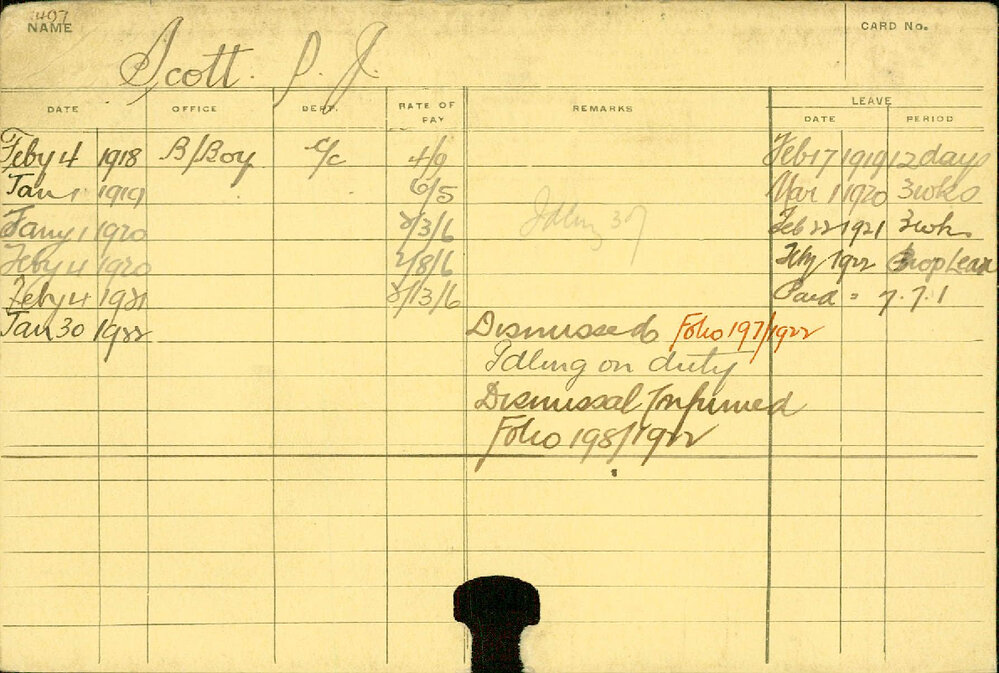 407
NAME
Scott. P. J.
CARD No.
DATE OFFICE DEPT. RATE OF PAY REMARKS LEAVE
DATE PERIOD
Feby 4 1918 B/Boy C/C 4/9 Feb 17 1919 12 days
Jan 1 1919 6/5 Mar 1 1920 3 wks
Jany 1 1920 /3/6 Feb 22 1921 3 wks
Feby 4 1920 /8/6 Feby 1922
Feby 4 1921 /13/6 Paid = 7.7.1
Jan 30 1922 Dismissed Folio 197/1922
Idling on duty
Dismissal Confirmed
Folio 198/1922